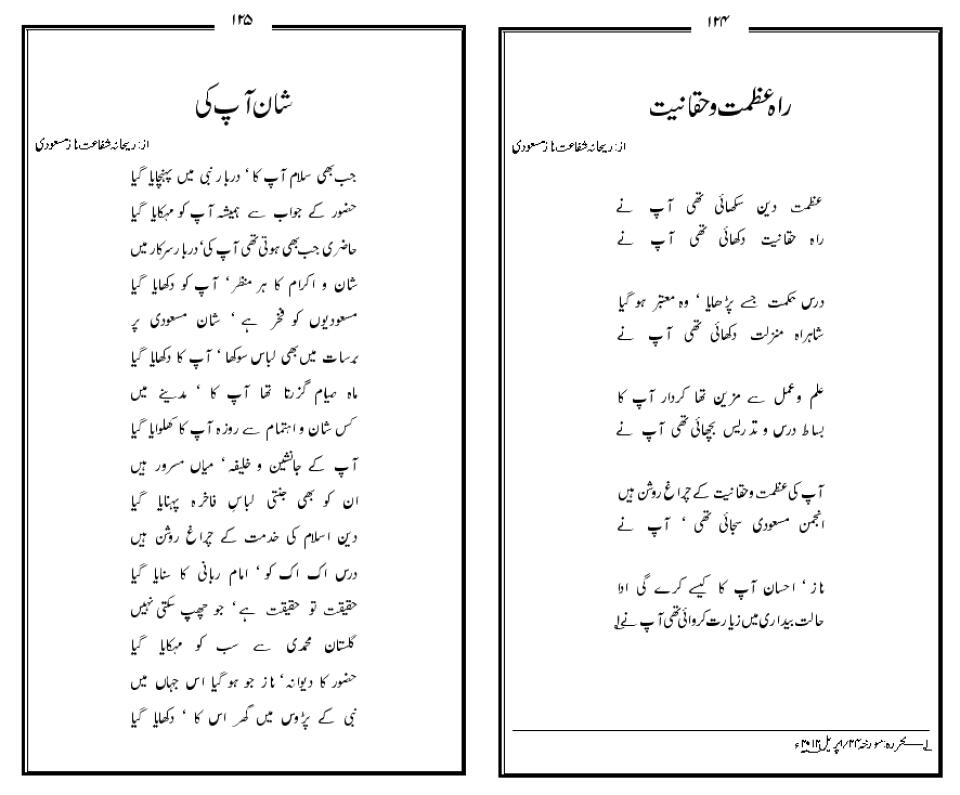 ۱۲۴
راہ عظمت و حقانیت
از: ریحانہ شفاعت ناز مسعودی
عظمت دین سکھائی تھی آپ نے
راہ حقانیت دکھائی تھی آپ نے
درس حکمت جسے پڑھایا ‘ وہ معتبر ہو گیا
شاہراہ منزلت دکھائی تھی آپ نے
علم و عمل سے مزین تھا کردار آپ کا
بساط درس و تدریس بچھائی تھی آپ نے
آپ کی عظمت و حقانیت کے چراغ روشن ہیں
انجمن مسعودی سجائی تھی ‘ آپ نے
ناز ‘ احسان آپ کا کیسے کرے گی ادا
حالت بیداری میں زیارت کروائی تھی آپ نے۱
۱ تحریرہ: مورخہ ۲۴/اپریل ۲۰۱۲ء
۱۲۵
شان آپ کی
از: ریحانہ شفاعت ناز مسعودی
جب بھی سلام آپ کا ‘ دربار نبی میں پہنچایا گیا
حضور کے جواب سے ہمیشہ آپ کو مہکایا گیا
حاضری جب بھی ہوتی تھی آپ کی‘ دربار سرکار میں
شان و اکرام کا ہر منظر ‘ آپ کو دکھایا گیا
مسعودیوں کو فخر ہے ‘ شان مسعودی پر
برسات میں بھی لباس سوکھا ‘ آپ کا دکھایا گیا
ماہ صیام گزرتا تھا آپ کا ‘ مدینے میں
کس شان و اہتمام سے روزہ آپ کا کھلوایا گیا
آپ کے جانشین و خلیفہ ‘ میاں مسرور ہیں
ان کو بھی جنتی لباسِ فاخرہ پہنایا گیا
دین اسلام کی خدمت کے چراغ روشن ہیں
درس اک اک کو ‘ امام ربانی کا سنایا گیا
حقیقت تو حقیقت ہے ‘ جو چھپ سکتی نہیں
گلستان محمدی سے سب کو مہکایا گیا
حضور کا دیوانہ ‘ ناز جو ہو گیا اس جہاں میں
نبی کے پڑوس میں گھر اس کا ‘ دکھایا گیا